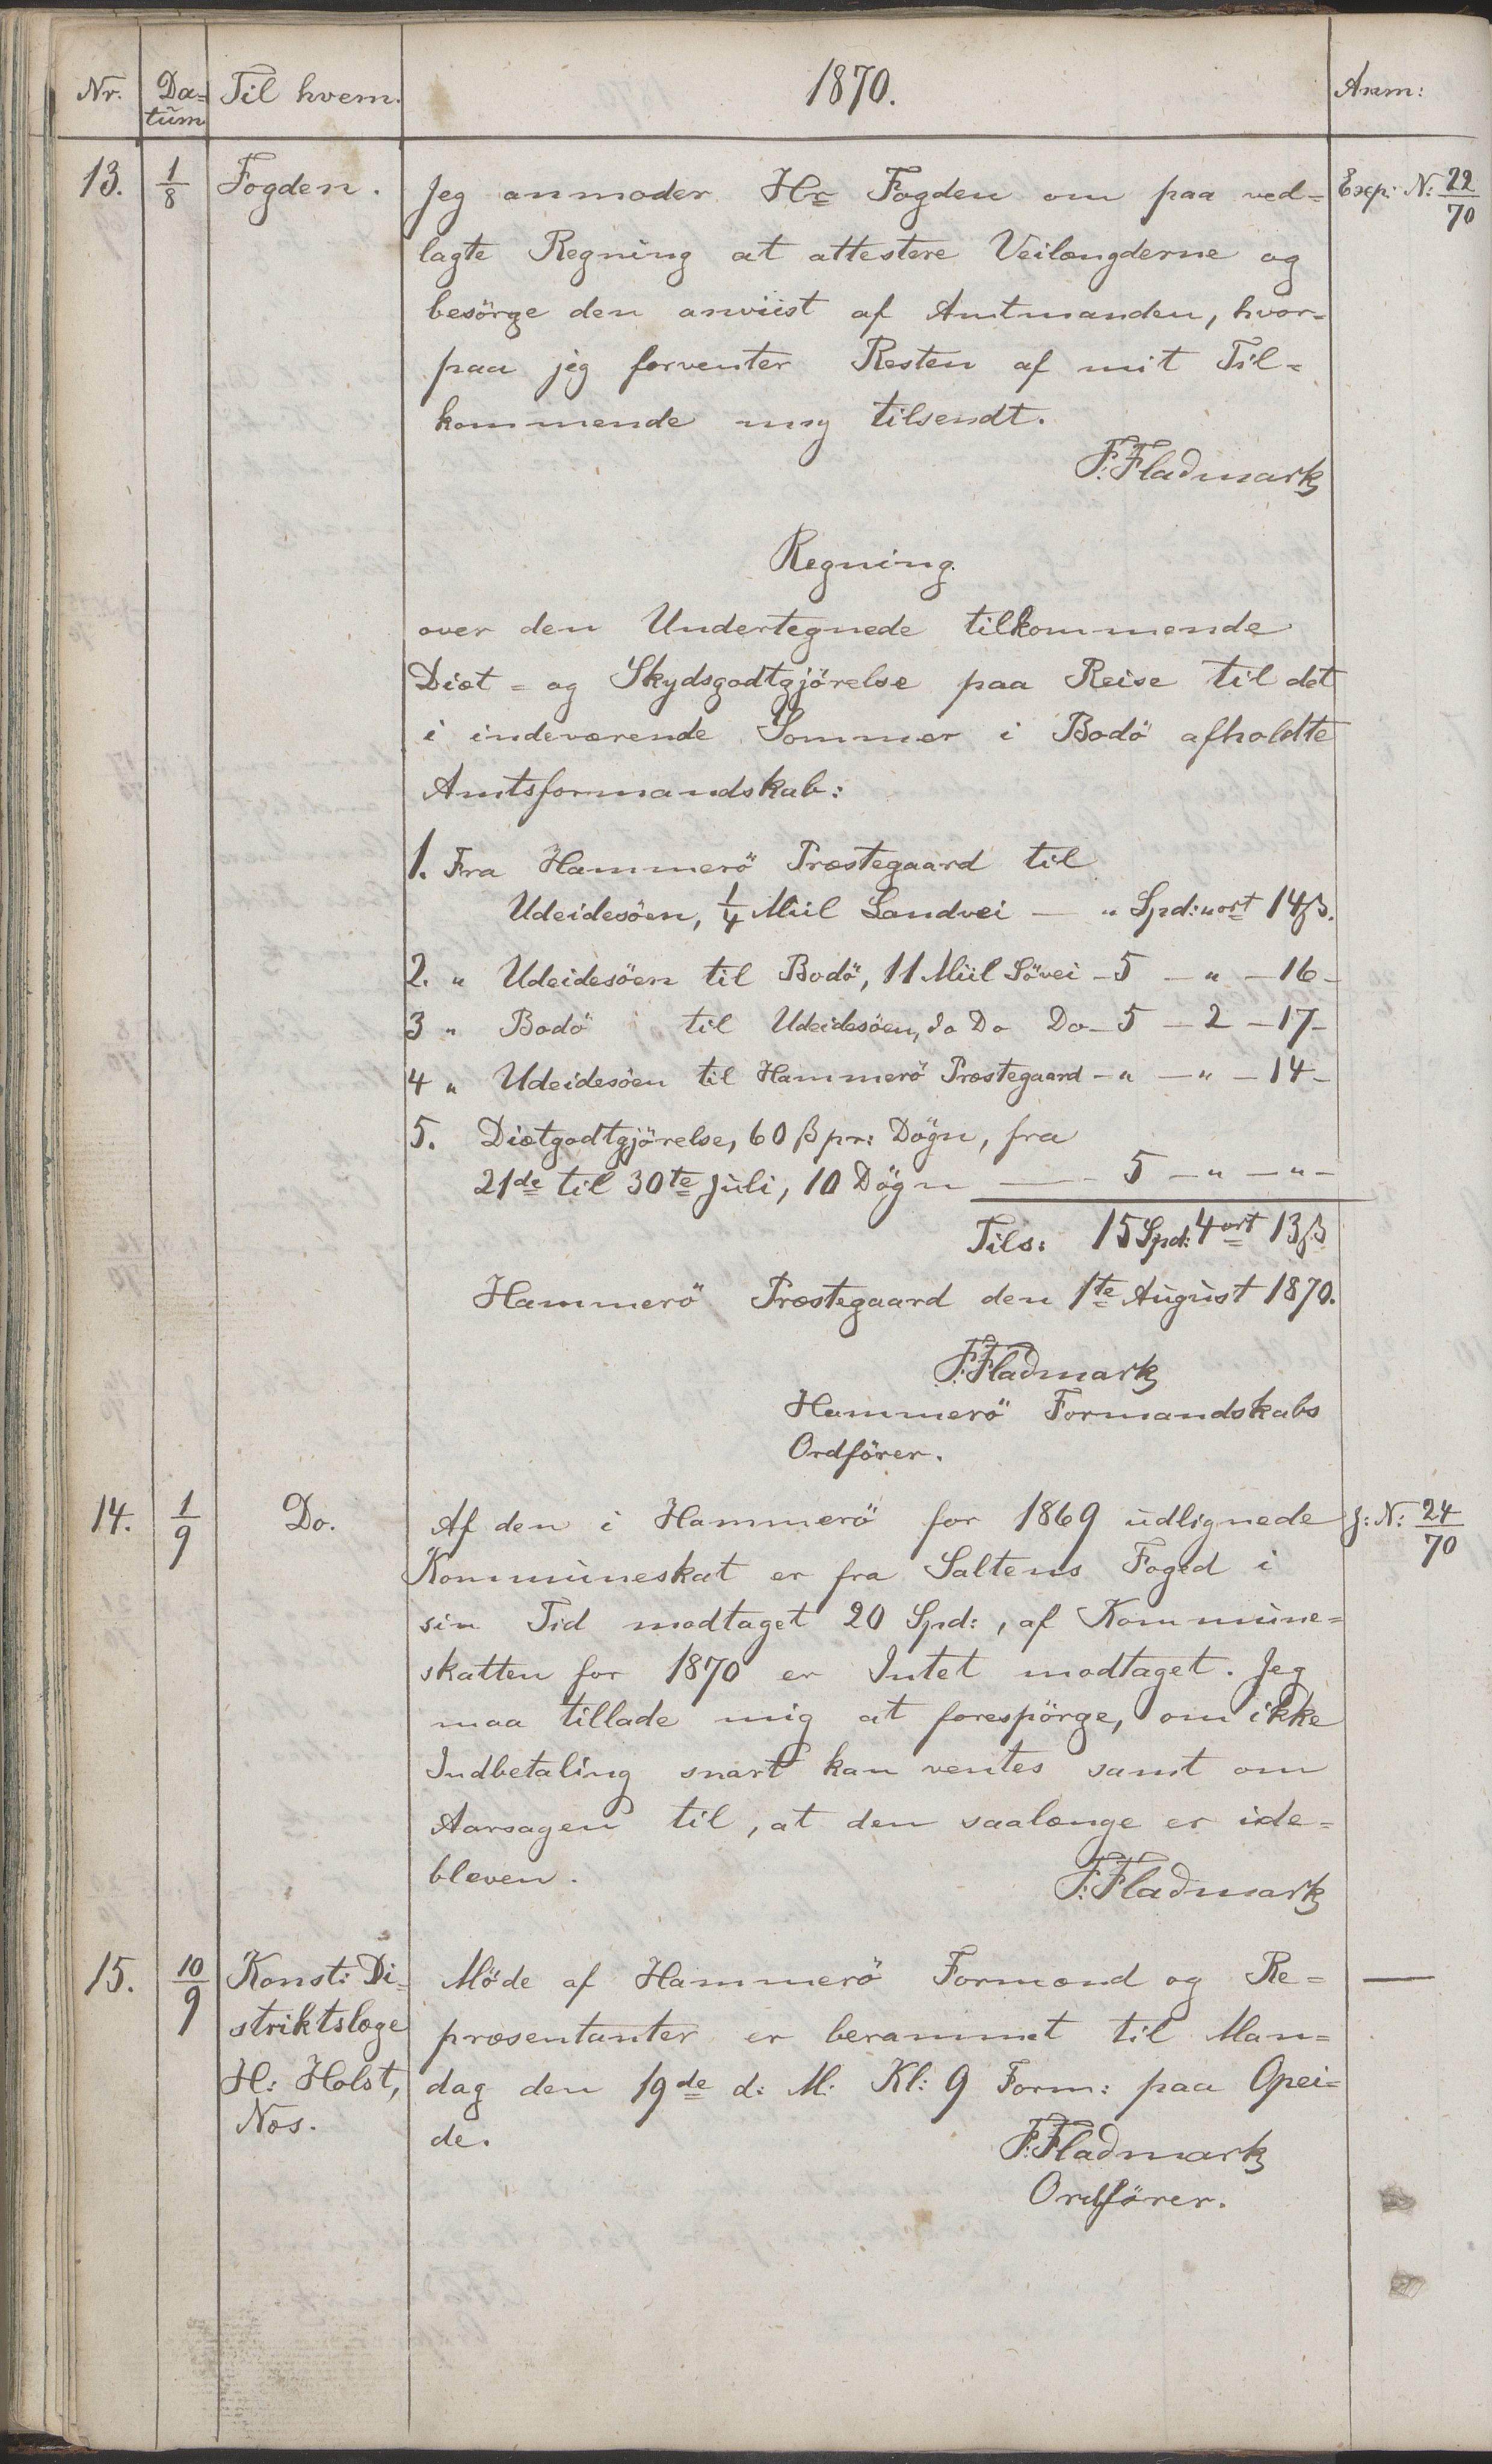 Nr. Da= Til hvem. 1870. Anm:
tum
13. 1/8 Fogden. Jeg anmoder Hr Fogden om paa ved= Exp: N: 22/70
lagte Regning at attestere Veilængderne og
besörge den anviist af Amtmanden, hvor=
paa jeg forventer Resten af mit Til=
kommende mig tilsendt.
F. Fladmark
Regning.
over den Undertegnede tilkommende
Diæt= og Skydsgodtgjörelse paa Reise til det
i indeværende Sommer i Bodö afholdte
Amtsformandskab:
1. Fra Hammerö Præstegaard til
Udeidesöen, 1/4 Miil Landvei — " Spd: " ort 14 ß.
2. " Udeidesöen til Bodö, 11 Miil Sövei - 5 — " — 16 -
3 " Bodö til Udeidesöen, do Do Do - 5 — 2 — 17 -
4 " Udeidesöen til Hammerö Præstegaard - " — " — 14 -
5. Diætgodtgjörelse, 60 ß pr: Dögn, fra
21de til 30te Juli, 10 Dögn — 5 — " — " -
Tils: 15 Spd: 4 ort 13 ß
Hammerö Præstegaard den 1te August 1870.
F. Fladmark
Hammerö Formandskabs
Ordförer.
14. 1/9 Do. Af den i Hammerö for 1869 udlignede J: N: 24/70
Kommuneskat er fra Saltens Foged i
sin Tid modtaget 20 Spd:, af Kommune=
skatten for 1870 er Intet modtaget. Jeg
maa tillade mig at forespörge, om ikke
Indbetaling snart kan ventes samt om
Aarsagen til, at den saalænge er ude=
bleven.
F. Fladmark
15. 10/9 Konst: Di= Möde af Hammerö Formænd og Re= —
striktslæge præsentanter er berammet til Man=
H: Holst, dag den 19de d: M: Kl: 9 Form: paa Opei=
Næs. de.
F. Fladmark
Ordförer.